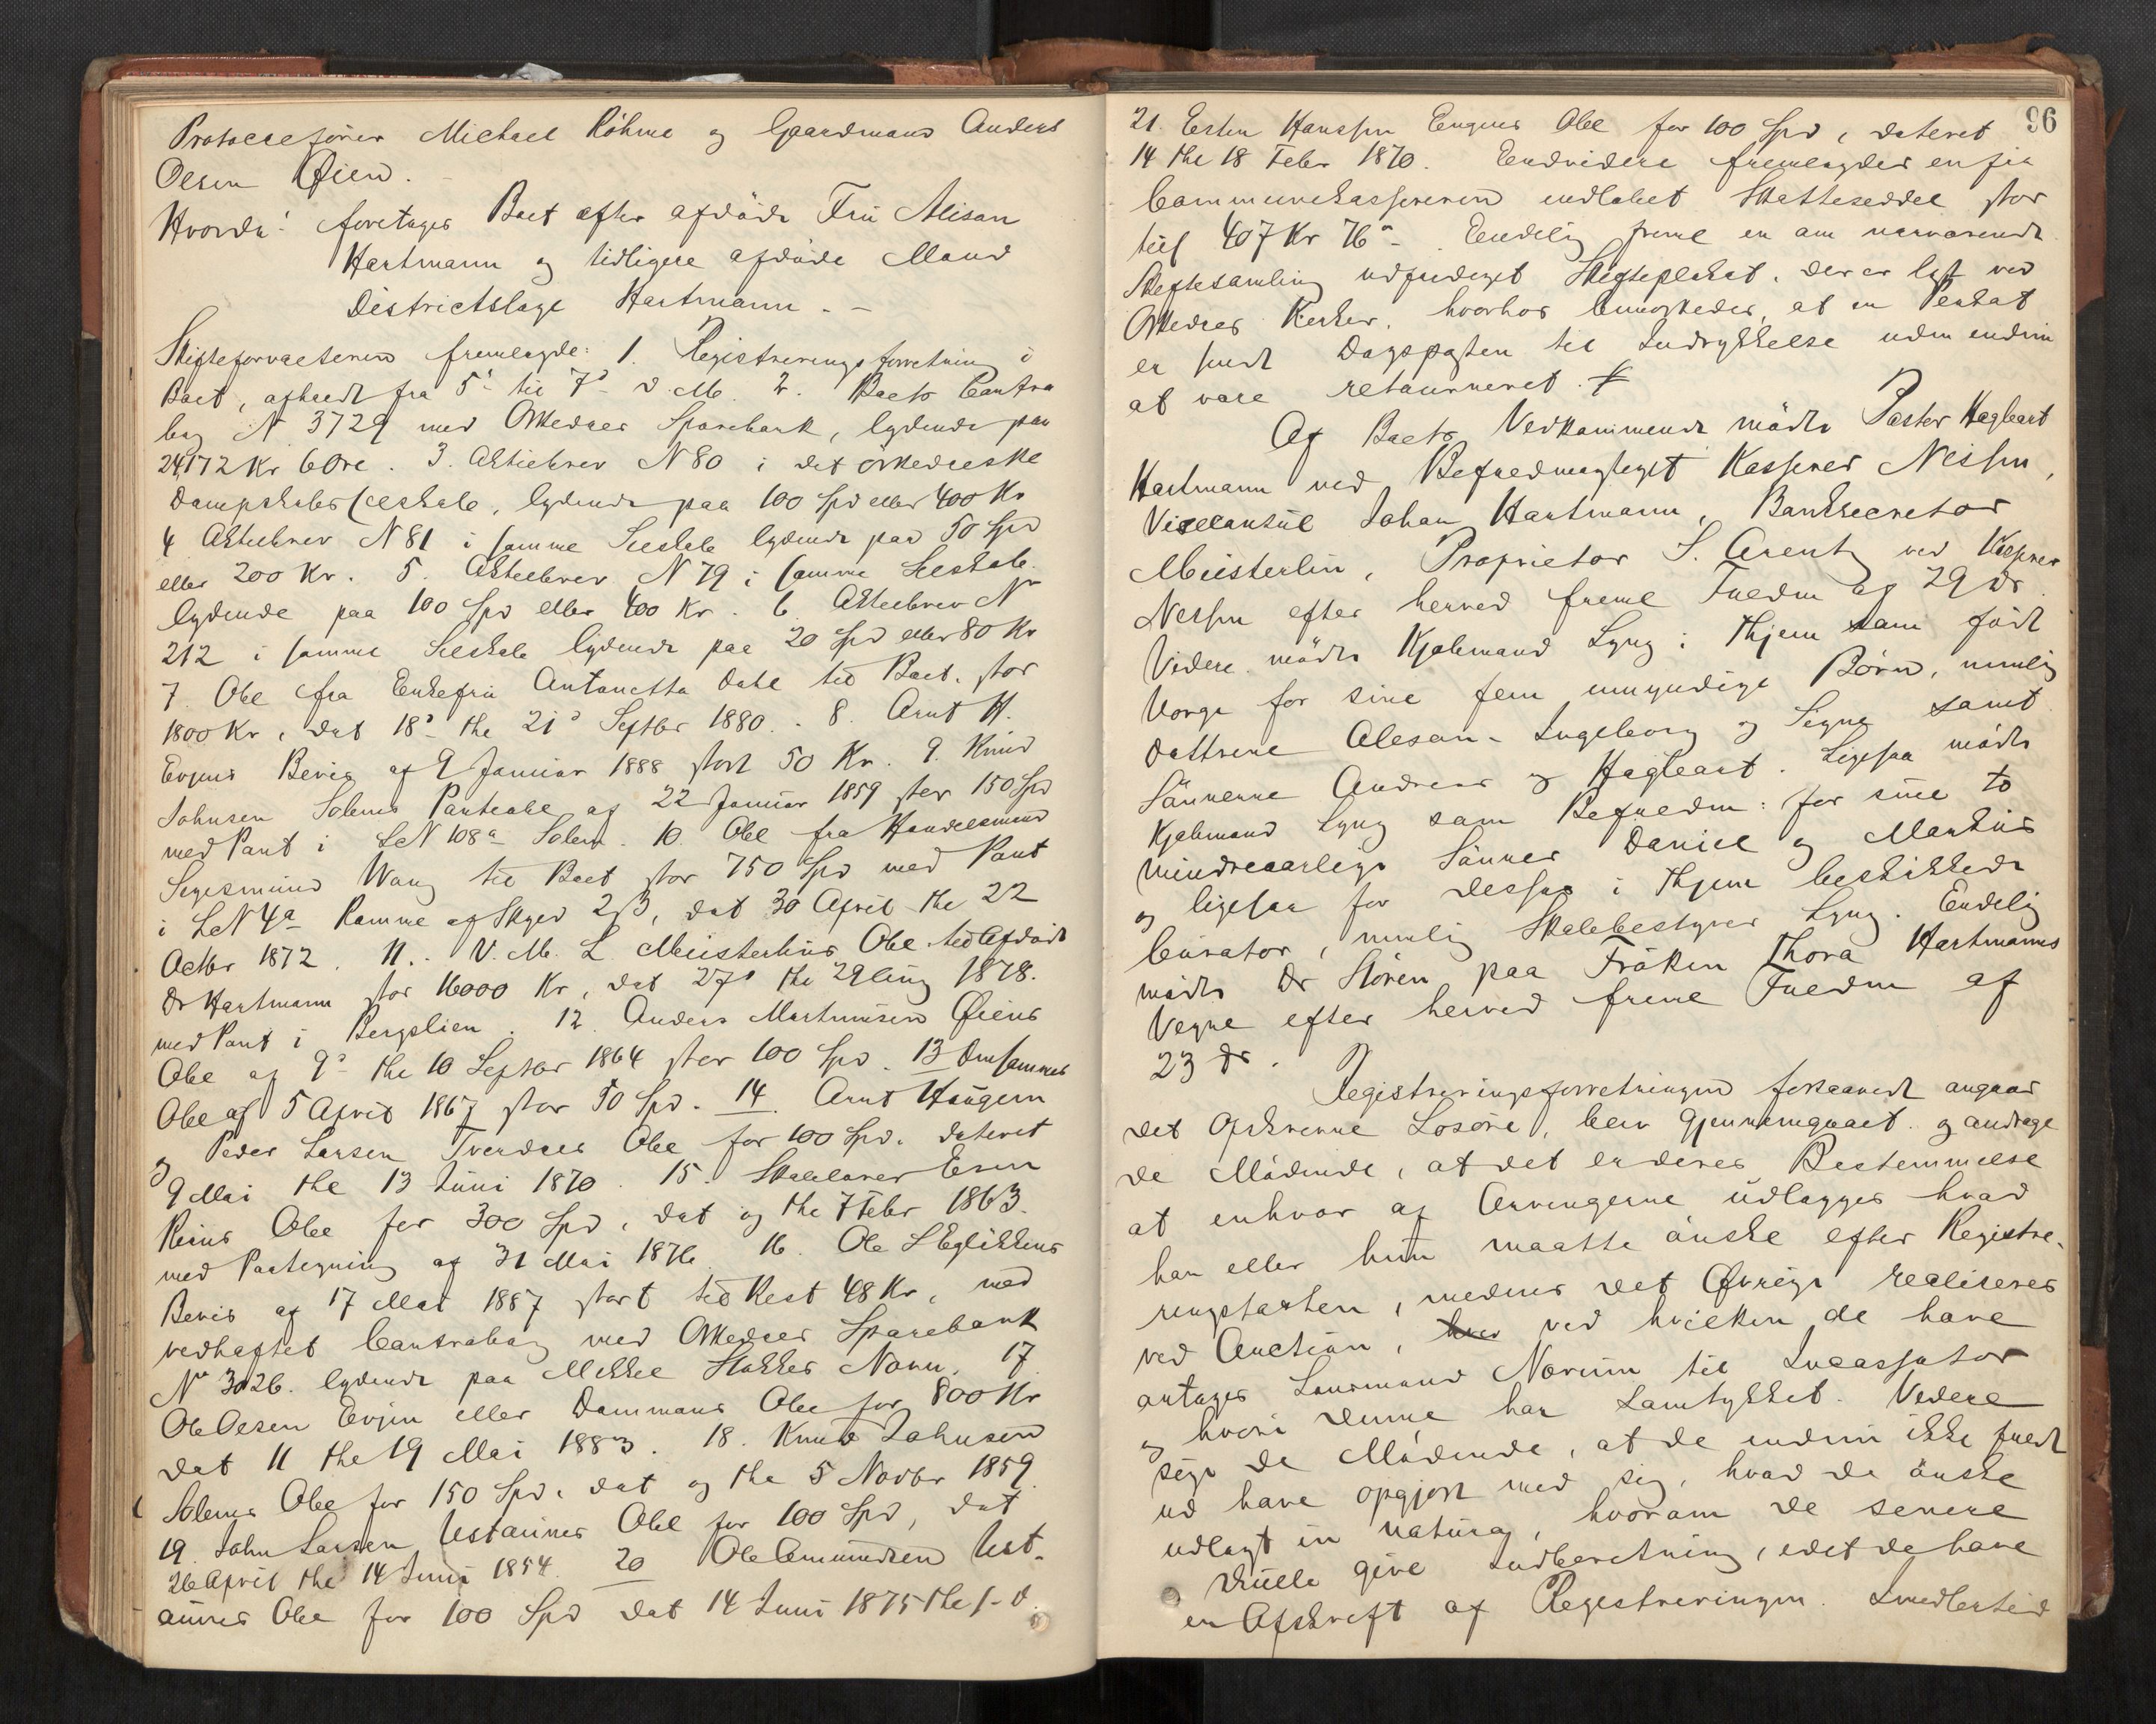 Protocolfører Michael Röhme og Gaardmand Anders
Olsen Øien.
Hvorda: foretoges Boet efter afdöde Fru Alison
Hartmann og tidligere afdöde Mand
Districtslæge Hartmann. -
Skifteforvalteren fremlagde: 1. Registreringsforretning i
Boet, afholdt fra 5te til 7de d. M. 2. Boets Contra
bog N 3729 med Orkedals Sparebank, lydende paa
24,172 Kr 6 Øre. 3. Aktiebrev N 80 i det orkedalske
Dampskibsselskab, lydende paa 100 Spd eller 400 Kr
4 Aktiebrev N 81 i samme Selskab lydende paa 50 Spd
eller 200 Kr. 5. Aktiebrev N 79 i samme Selskab
lydende paa 100 Spd eller 400 Kr. 6 Aktiebrev No
212 i samme Selskab lydende paa 20 Spd eller 80 Kr
7. Obl fra Enkefru Antonetta Dahl til Boet, stor
1800 Kr, dat 18de thl 21de Septbr 1880. 8. Arnt H.
Evjens Bevis af 9 Januar 1888 stort 50 Kr. 9. Knud
Johnsen Solems Panteobl af 22 Januar 1859 stor 150 Spd
med Pant i LN 108a Solem. 10. Obl fra Handelsmand
Sigismund Wang til Boet stor 750 Spd med Pant
i LN 4a Ramme af Skyld 2, 3, dat 30 April thl 22
Octbr 1872. 11. V. M. L. Meisterlins Obl til Afdöde
Dr Hartmann stor 16000 Kr, dat 27de thl 29 Aug 1878.
med Pant i Bergslien. 12. Anders Martinusen Øiens
Obl af 9de thl 10 Septbr 1864 stor 100 Spd. 13 Omsammes
Obl af 5 April 1867 stor 50 Spd. 14. Arnt Haugen
og Peder Larsen Tverdals Obl for 100 Spd. dateret
9 Mai thl 13 Juni 1870. 15. Skolelærer Esten
Reins Obl for 300 Spd, dat og thl 7 Febr 1863.
med Paategning af 31 Mai 1876. 16. Ole L Eglikkens
Bevis af 17 Mai 1887 stort til Rest 48 Kr, med
vedhæftet Contrabog med Orkedals Sparebank
No 3026. lydende paa Mikkel Stokkes Navn. 17
Ole Olsen Evjen eller Dammans Obl for 800 Kr
dat 11 thl 19 Mai 1883. 18. Knud Johnsen
Solems Obl for 150 Spd. dat og thl 5 Novbr 1859.
19. John Larsen Ustaunes Obl for 100 Spd, dat
26 April thl 14 Juni 1854. 20 Ole Amundsen Ust-
aunes Obl for 100 Spd dat 14 Juni 1875 thl s. D.
96
21. Esten Hansen Engens Obl for 100 Spd, dateret
14 thl 18 Febr 1870. Endvidere fremlagdes en fra
Communekassereren indløbet Skatteseddel stor
tilf 407 Kr 76 Ø. Endelig freml en om nærværende
Skiftesamling udfærdiget Skifteplakat, der er læst ved
Orkedals Kirker. hvorhos bemærkedes, at en Plakat
er sendt Dagsposten til Indrykkelse uden endnu
at være retourneret.
Af Boets Vedkommende mödte Pastor Hagbart
Hartmann ved Befuldmægtiget Kasserer Nissen,
Vicekonsul Johan Hartmann, Banksecretær
Meisterlin, Proprietær S. Arentz ved Kasserer
Nissen efter herved freml Fuldm af 29 ds.
Videre mödte Kjøbmand Lyng i Thjem som född
Værge for sine fem umyndige Börn, nemlig
Döttrene Alison, Ingeborg og Signe samt
Sönnerne Andreas og Hagbart. Ligesaa mödte
Kjøbmand Lyng som Befuldm: for sine to
mindreaarlige Sönner Daniel og Markus
og ligesaa for disses i Thjem beskikkede
Curator, nemlig Skolebestyrer Lyng. Endelig
mödte Dr Stören paa Fröken Thora Hartmanns
Vegne efter herved freml Fuldm af
23 ds.
Registreringsforretningen forsaavidt angaar
det opskrevne Losöre, blev gjennemgaaet. og androge
de Mödende, at det er deres Bestemmelse
at enhver af Arvingerne udlægges hvad
han eller hun maatte önske efter Registre-
ringstaxten, medens det Øvrige realiseres
ved Auction, ved hvilken de have
antaget Lensmand Norum til Incassator
og hvori denne har samtykket. Videre
sige de Mödende, at de endnu ikke fuldt
ud have opgjort med sig, hvad de önske
udlagt in natura, hvorom de senere
skulle give Indberetning, idet de have
en Afskrift af Registreringen. Imidlertid